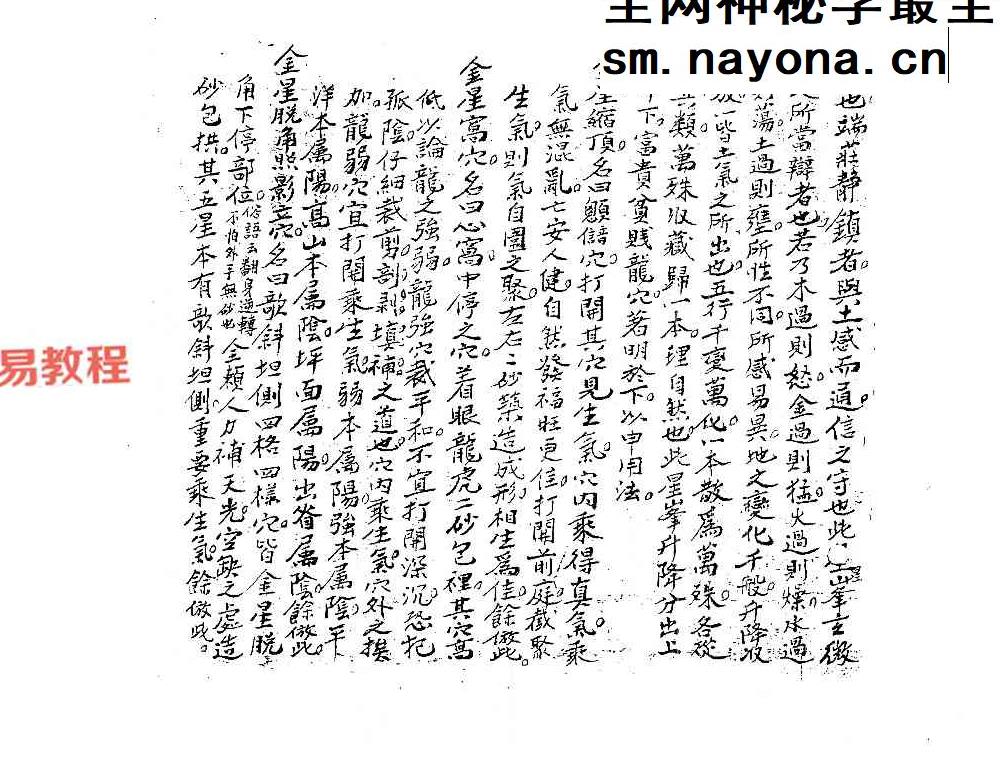 全网神秘学最全
sm.nayona.cn
易教程
也端莊静鎮者與土感而通信之守也此山峯玄微
所當辯者也若乃木過則怒金過則猛火過則燥水過
蕩土過則壅所性不同所感易異地之變化千般升降收
放皆土氣之所出也五行千變萬化一本散爲萬殊各從
其類萬殊收藏歸一本理自然也此星峯升降分出上
下富貴貧賤龍穴著明於下以申用法
縮頂名曰顖𩕄穴打開其穴見生氣穴内乘得真氣乘
氣無混亂亡安人健自然發福旺更佳打開前庭截聚
生氣則氣自圍之聚左右二砂築造成形相生爲佳餘倣此
金星窩穴名曰心窩中停之穴着眼龍虎二砂包裡其穴高
低以論龍之強弱龍強穴裁平和不宜打開深沉恐犯
孤陰仔細裁剪剖剥填補之道也穴内乘生氣穴外之挨
加龍弱穴宜打開乘生氣弱本属陽強本属陰平
洋本属陽高山本属陰坪面属陽出脊属陰餘倣此
金星脱角照影立穴名曰欹斜坦側四格四樣穴皆金星脱
角下停部位俗語云翻身逆轉不怕外手無砂出全賴人力補天光空缺之處造
砂包拱其五星本有欹斜坦側重要乘生氣餘倣此